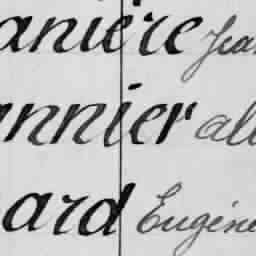 anière Jea
annier alb
ard Eugéne